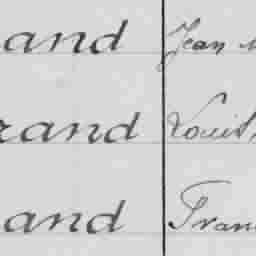 and Jean
rand Louis
and Fran